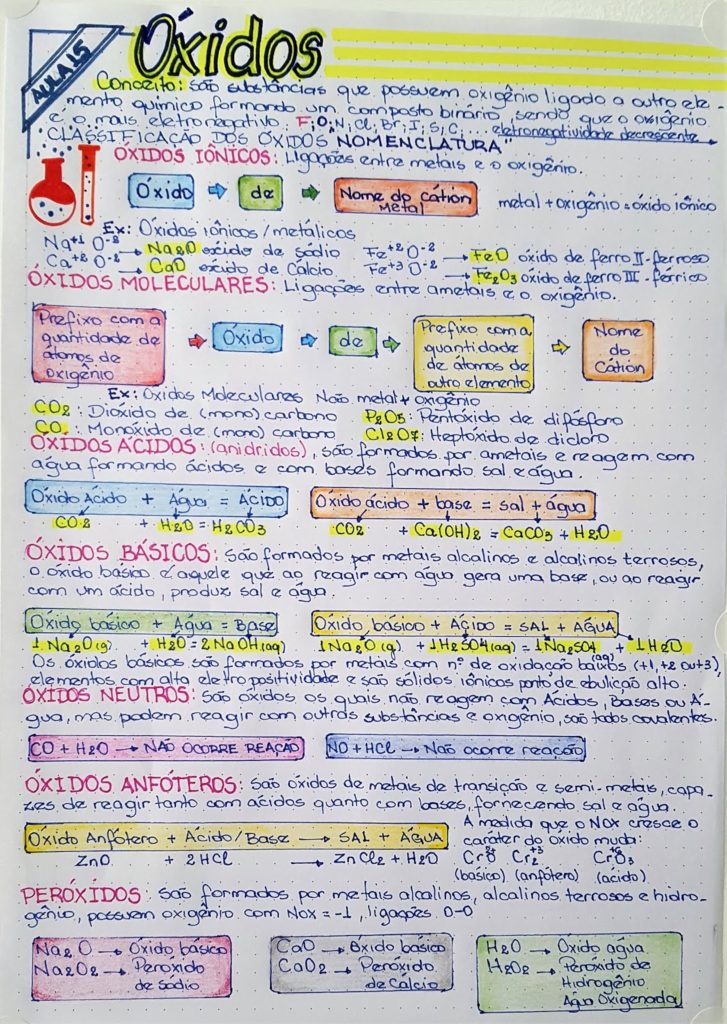 AULA 15
Óxidos
Conceito: São substâncias que possuem oxigênio ligado a outro ele-
mento químico formando um composto binário, sendo que o oxigênio
é o mais eletronegativo. F, O, N, Cl, Br, I, S, C, ... eletronegatividade decrescente
CLASSIFICAÇÃO DOS ÓXIDOS "NOMENCLATURA"
ÓXIDOS IÔNICOS: Ligações entre metais e o oxigênio.
Óxido → de → Nome do Cátion Metal
metal + oxigênio = óxido iônico
Ex: Óxidos iônicos/metálicos
Na+1 O-2 → Na2O óxido de sódio
Ca+2 O-2 → CaO óxido de Cálcio
Fe+2 O-2 → FeO óxido de ferro II-ferroso
Fe+3 O-2 → Fe2O3 óxido de ferro III-férrico
ÓXIDOS MOLECULARES: Ligações entre ametais e o oxigênio.
Prefixo com a
quantidade de
átomos de
oxigênio
→ Óxido → de →
Prefixo com a
quantidade
de átomos de
outro elemento
→
Nome
do
Cátion
Ex: Óxidos Moleculares Não metal + oxigênio
CO2: Dióxido de (mono) carbono
CO: Monóxido de (mono) carbono
P2O5: Pentóxido de difósforo
Cl2O7: Heptóxido de dicloro
ÓXIDOS ÁCIDOS: (anidridos), são formados por ametais e reagem com
água formando ácidos e com bases formando sal e água.
Óxido Ácido + Água = ÁCIDO
CO2 + H2O = H2CO3
Óxido ácido + base = sal + água
CO2 + Ca(OH)2 = CaCO3 + H2O
ÓXIDOS BÁSICOS: São formados por metais alcalinos e alcalinos terrosos,
o óxido básico é aquele que ao reagir com água gera uma base, ou ao reagir
com um ácido, produz sal e água.
Óxido básico + Água = Base
1Na2O(g) + H2O = 2NaOH(aq)
Óxido básico + ÁCIDO = SAL + ÁGUA
1Na2O(g) + 1H2SO4(aq) = 1Na2SO4(aq) + 1H2O
Os óxidos básicos são formados por metais com nº de oxidação baixos (+1, +2 ou +3),
elementos com alta eletropositividade e são sólidos iônicos ponto de ebulição alto.
ÓXIDOS NEUTROS: São óxidos os quais não reagem com Ácidos, Bases ou Á-
gua, mas podem reagir com outras substâncias e oxigênio, são todos covalentes.
CO + H2O → NÃO OCORRE REAÇÃO
NO + HCl → Não ocorre reação
ÓXIDOS ANFÓTEROS: São óxidos de metais de transição e semi-metais, capa-
zes de reagir tanto com ácidos quanto com bases, fornecendo sal e água.
Óxido Anfótero + Ácido/Base → SAL + ÁGUA
ZnO + 2HCl → ZnCl2 + H2O
A medida que o NOX cresce o
caráter do óxido muda:
(básico) (anfótero) (ácido)
PERÓXIDOS: São formados por metais alcalinos, alcalinos terrosos e hidro-
gênio, possuem oxigênio com Nox = -1, ligações O-O
Na2O → Óxido básico
Na2O2 → Peróxido
de sódio
CaO → Óxido básico
CaO2 → Peróxido
de Cálcio
H2O → Óxido água
H2O2 → Peróxido de
Hidrogênio
Água Oxigenada